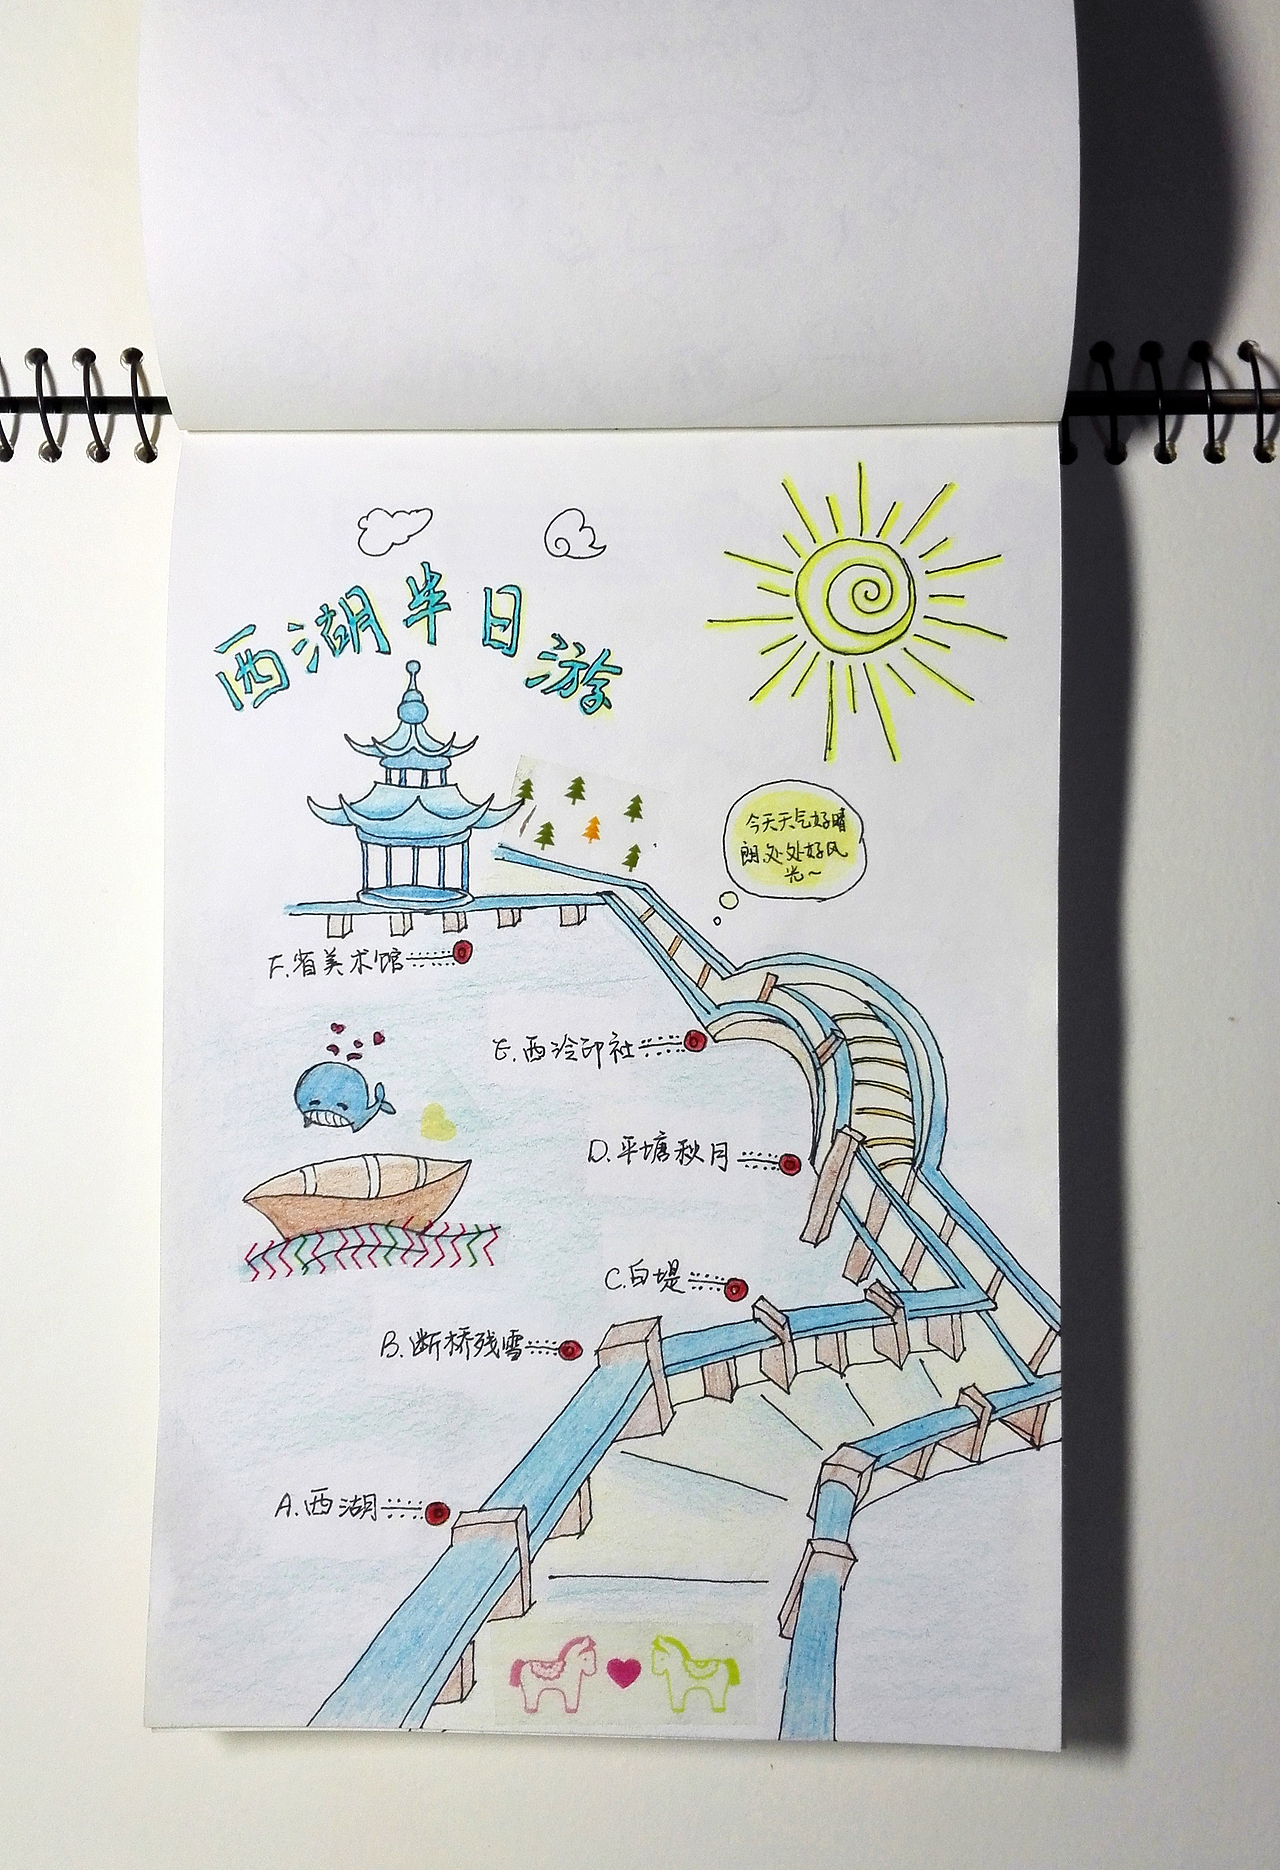 西湖半日游
今天天气好晴
朗,处处好风
光~
F.省美术馆
E.西泠印社
D.平塘秋月
C.白堤
B.断桥残雪
A.西湖